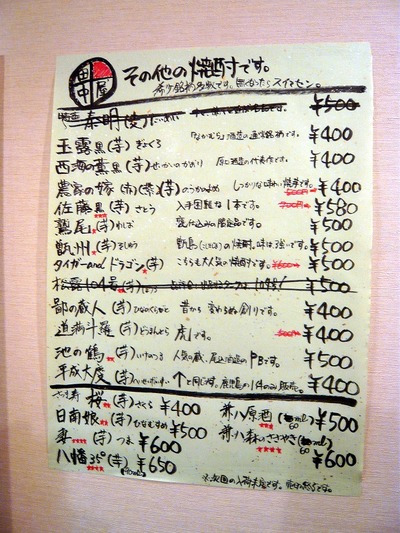 田中屋 その他の焼酎です。
希少銘柄多数です。無かったらスイマセン。
¥500
玉露黒(芋)ぎょくろ ¥400
西海の薫黒(芋)せいかいのかおり 原口酒造の代表作です。 ¥400
農家の嫁(芋)のうかのよめ しっかりな味わい焼芋です。 ¥400
佐藤黒(芋)さとう 入手困難な1本です。 ¥580
鷲尾(芋)わしお 甕仕込みの限定品です。 ¥500
甑州(芋)そしゅう 甑島の焼酎。味は強いです。 ¥500
タイガー and ドラゴン(芋) こちらも大人気の焼酎です。 ¥500
松露104号(芋) ¥500
鄙の蔵人(芋)ひなのくらびと 昔から変わらぬ創りです。 ¥400
道満斗羅(芋)どうまんとら 虎です。 ¥400
池の鶴(芋)いけのつる 人気の蔵、尾込酒造のPBです。 ¥500
平成大慶(芋) ↑と同じ蔵。鹿児島の1件のみ販売。 ¥400
さつま寿 桜(芋)さくら ¥400
日南娘(芋)ひなむすめ ¥500
妻(芋)つま ¥600
八幡35°(芋) ¥650
兼八原酒 60ml ¥500
兼八森のささやき 60ml ¥600